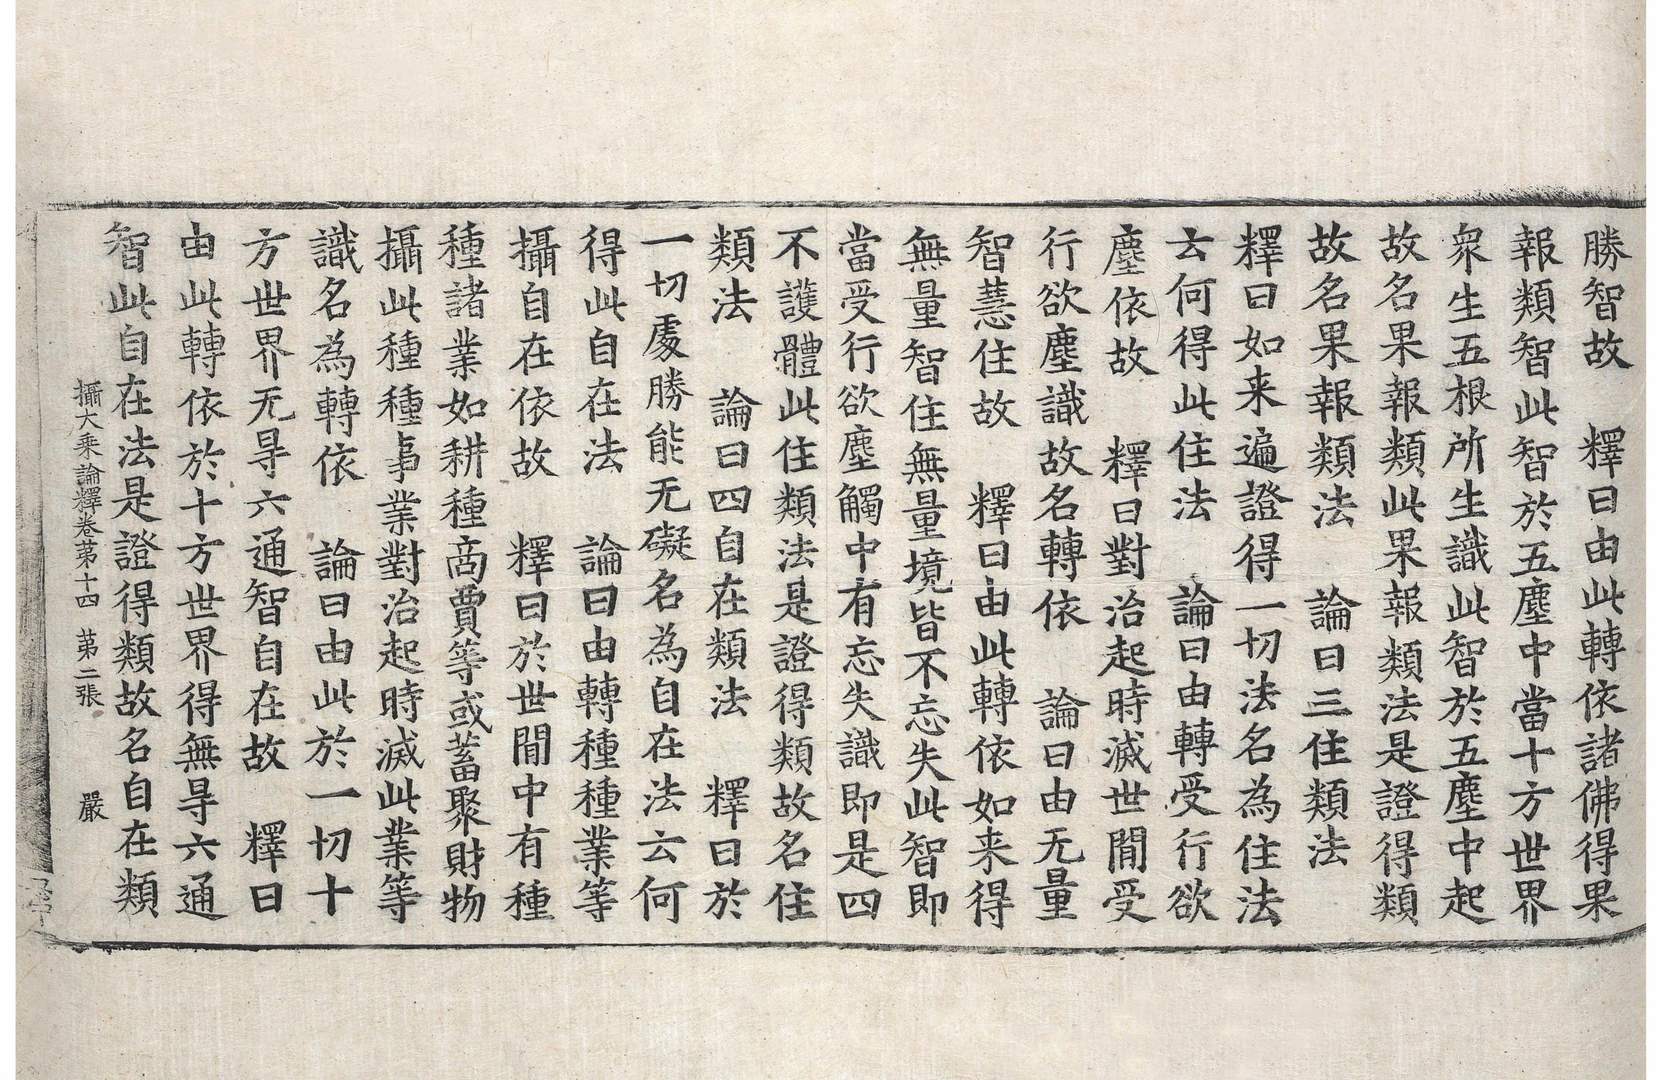 勝智故　釋曰由此轉依諸佛得果
報類智此智於五塵中當十方世界
衆生五根所生識此智於五塵中起
故名果報類此果報類法是證得類
故名果報類法　論曰三住類法
釋曰如来遍證得一切法名為住法
云何得此住法　論曰由轉受行欲
塵依故　釋曰對治起時滅世間受
行欲塵識故名轉依　論曰由无量
智慧住故　釋曰由此轉依如来得
無量智住無量境皆不忘失此智即
當受行欲塵觸中有忘失識即是四
不護體此住類法是證得類故名住
類法　論曰四自在類法　釋曰於
一切處勝能无礙名為自在法云何
得此自在法　論曰由轉種種業等
攝自在依故　釋曰於世間中有種
種諸業如耕種商賈等或蓄聚財物
攝此種種事業對治起時滅此業等
識名為轉依　論曰由此於一切十
方世界无㝵六通智自在故　釋曰
由此轉依於十方世界得無㝵六通
智此自在法是證得類故名自在類
攝大乘論釋卷苐十四　苐二張　嚴